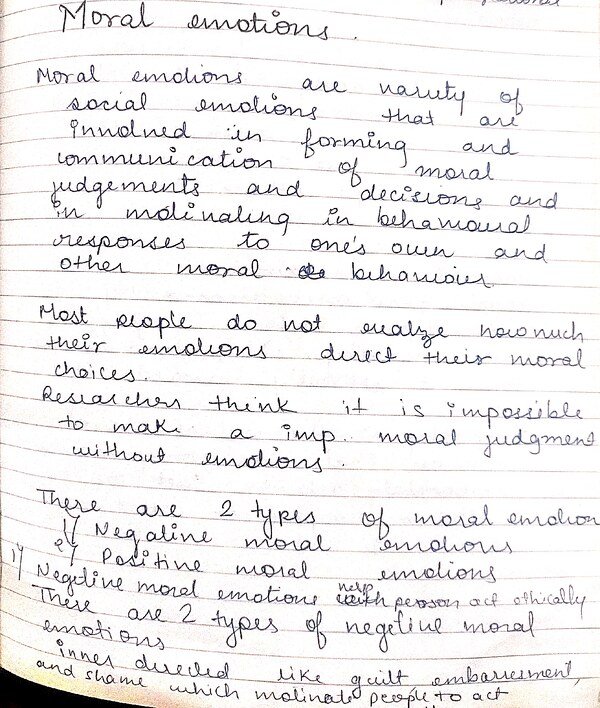 Moral emotions.
Moral emotions are variety of
social emotions that are
involved in forming and
communication of moral
judgements and decisions and
in motivating in behavioural
responses to one's own and
other moral behaviour
Most people do not realize how much
their emotions direct their moral
choices.
Researchers think it is impossible
to make a imp. moral judgment
without emotions.
There are 2 types of moral emotion
1/ Negative moral emotions
2/ Positive moral emotions
1/ Negetive moral emotions help person act ethically
There are 2 types of negetive moral
emotions
inner directed like guilt embarresment,
and shame which motivate people to act